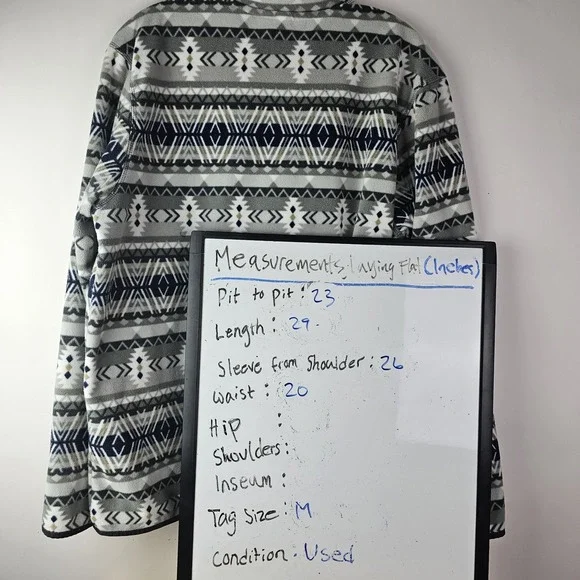 Measurements, Laying Flat (Inches)
Pit to Pit : 23
Length : 29
Sleeve from Shoulder : 26
Waist : 20
Hip :
Shoulders :
Inseum :
Tag Size : M
Condition : Used